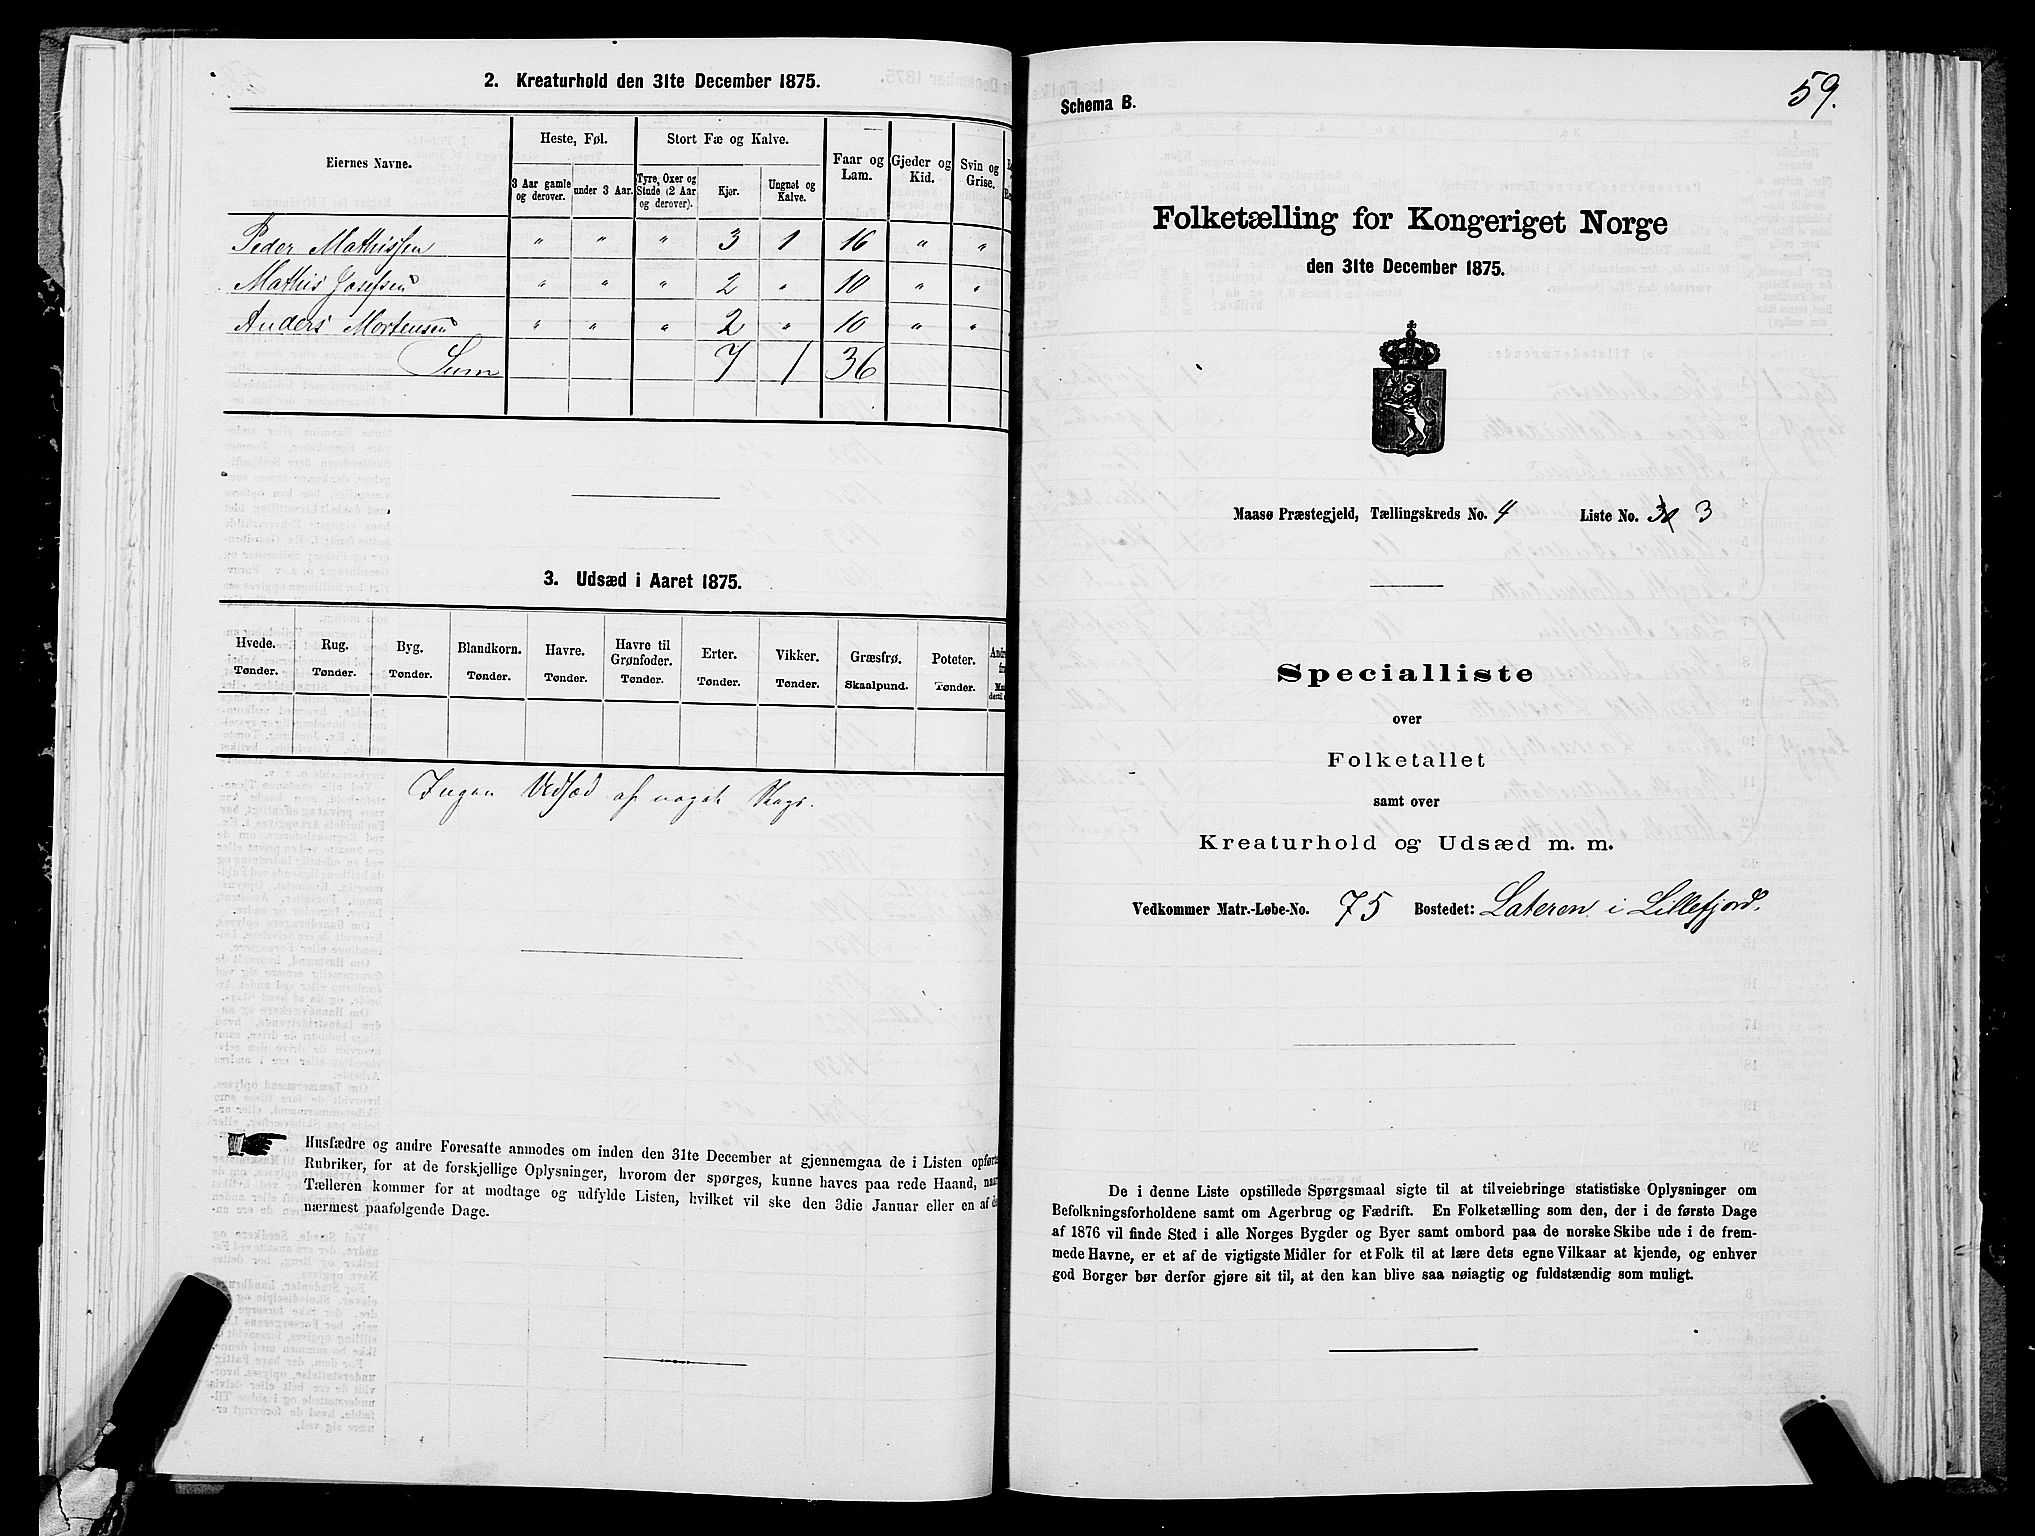 2. Kreaturhold den 31te December 1875.
Eiernes Navne.
Heste, Føl.
Stort Fæ og Kalve.
Faar og Lam.
Gjeder og Kid.
Svin og Grise.
3 Aar gamle og derover.
under 3 Aar.
Tyre, Oxer og Stude (2 Aar og derover).
Kjør.
Ungnøt og Kalve.
Peder Mathissen " " " 3 1 16 " "
Mathis Josefsen " " " 2 " 10 " "
Anders Mortensen " " " 2 " 10 " "
Sum 7 1 36
3. Udsæd i Aaret 1875.
Hvede. Rug. Byg. Blandkorn. Havre. Havre til Grønfoder. Erter. Vikker. Græsfrø. Poteter.
Tønder. Tønder. Tønder. Tønder. Tønder. Tønder. Tønder. Tønder. Skaalpund. Tønder.
Ingen Udsæd af noget Slags.
Husfædre og andre Foresatte anmodes om inden den 31te December at gjennemgaa de i Listen opførte
Rubriker, for at de forskjellige Oplysninger, hvorom der spørges, kunne haves paa rede Haand, naar
Tælleren kommer for at modtage og udfylde Listen, hvilket vil ske den 3die Januar eller en af de
nærmest paafølgende Dage.
59.
Schema B.
Folketælling for Kongeriget Norge
den 31te December 1875.
Maasø Præstegjeld, Tællingskreds No. 4 Liste No. 3
Specialliste
over
Folketallet
samt over
Kreaturhold og Udsæd m. m.
Vedkommer Matr.-Løbe-No. 75 Bostedet: Lateren i Lillefjord.
De i denne Liste opstillede Spørgsmaal sigte til at tilveiebringe statistiske Oplysninger om
Befolkningsforholdene samt om Agerbrug og Fædrift. En Folketælling som den, der i de første Dage
af 1876 vil finde Sted i alle Norges Bygder og Byer samt ombord paa de norske Skibe ude i de frem-
mede Havne, er et af de vigtigste Midler for et Folk til at lære dets egne Vilkaar at kjende, og enhver
god Borger bør derfor gjøre sit til, at den kan blive saa nøiagtig og fuldstændig som muligt.